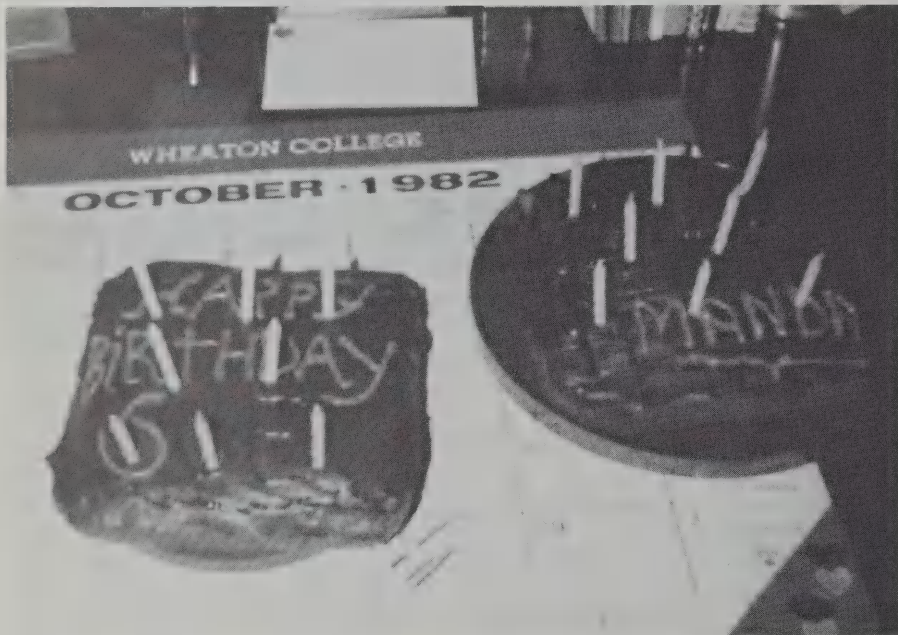 WHEATON COLLEGE
OCTOBER · 1982
HAPPY
BiRTHDAY
MANDA